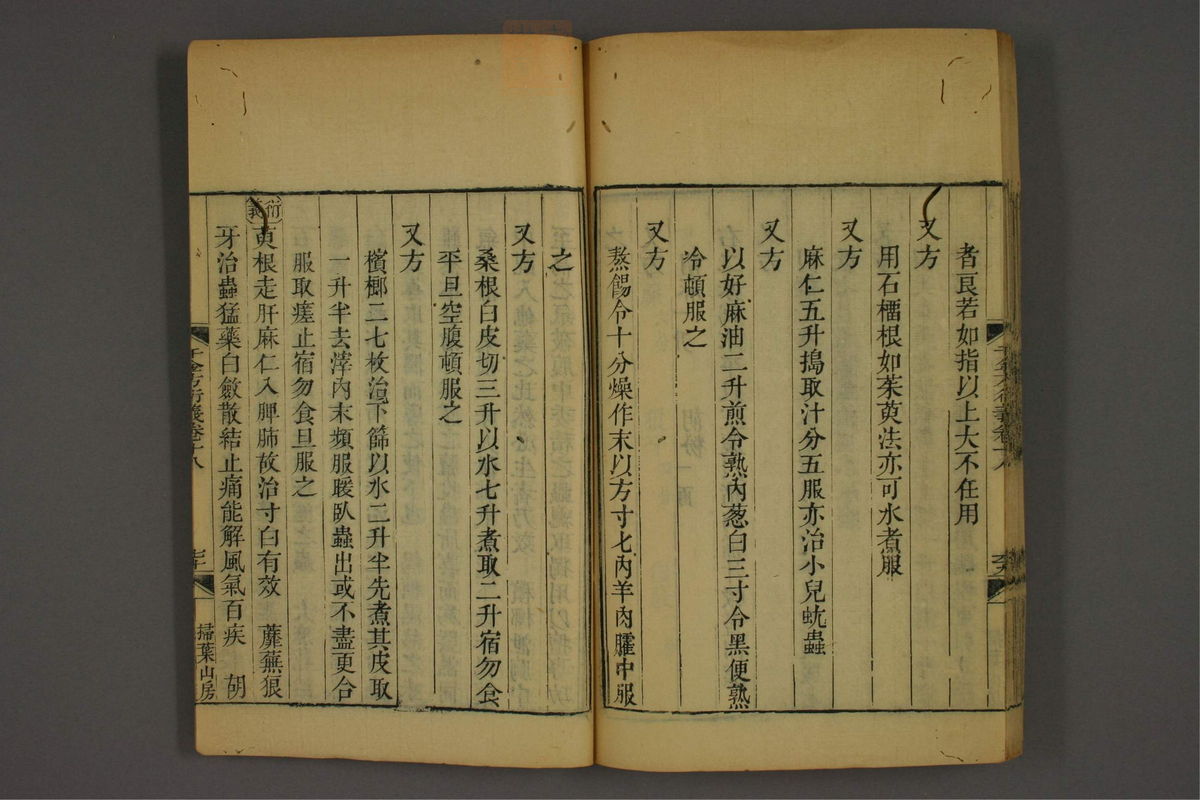 者良若如指以上大不任用
又方
用石橊根如茱萸法亦可水煮服
又方
麻仁五升搗取汁分五服亦治小兒蚘蟲
又方
以好麻油二升煎令熟內葱白三寸令黑便熟
冷頓服之
又方
熬餳令十分燥作末以方寸匕內羊肉臛中服
之
又方
桑根白皮切三升以水七升煮取二升宿勿食
平旦空腹頓服之
又方
檳榔二七枚治下篩以水二升半先煮其皮取
一升半去滓內末頻服暖臥蟲出或不盡更合
服取瘥止宿勿食旦服之
衍義
萸根走肝麻仁入脾肺故治寸白有效 蘼蕪狼
牙治蟲猛藥白蘞散結止痛能解風氣百疾 胡
千金方衍義卷十八
掃葉山房